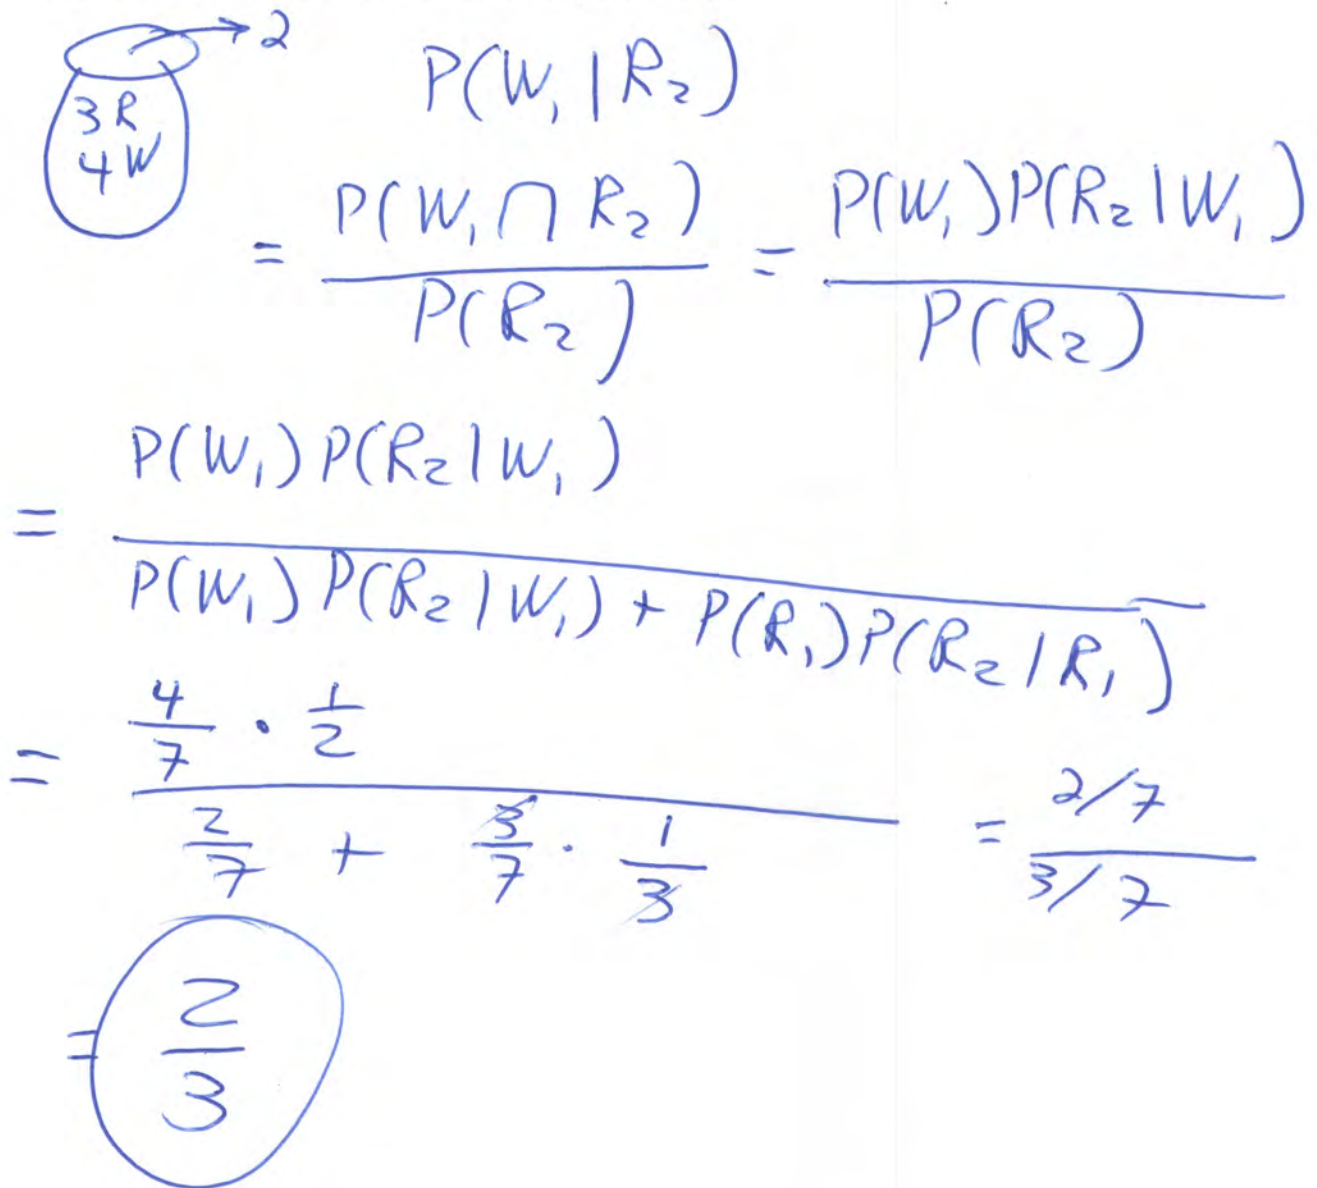 → 2
3R
4W
P(W₁ | R₂)
= P(W₁ ∩ R₂) / P(R₂) = P(W₁)P(R₂ | W₁) / P(R₂)
= P(W₁)P(R₂ | W₁) / P(W₁)P(R₂ | W₁) + P(R₁)P(R₂ | R₁)
= 4/7 · 1/2 / 2/7 + 3/7 · 1/3 = 2/7 / 3/7
= 2/3